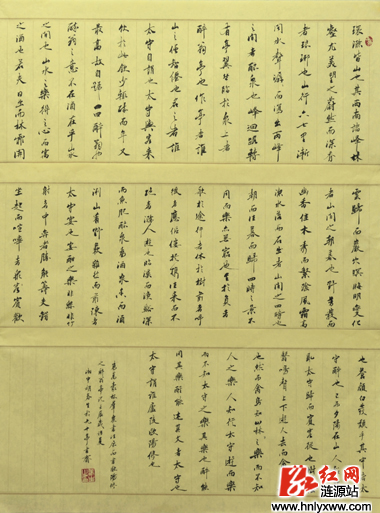 環滁皆山也其西南諸峰林
壑尤美望之蔚然而深秀
者琅琊也山行六七里漸
聞水聲潺潺而瀉出兩峰
之間者釀泉也峰迴路轉
有亭翼然臨於泉上者
醉翁亭也作亭者誰
山之僧智僊也名之者誰
太守自謂也太守與客來
飲於此飲少輒醉而年又
最高故自號曰醉翁也
醉翁之意不在酒在乎山水
之間也山水之樂得之心而寓
之酒也若夫日出而林霏開
雲歸而巖穴暝晦明變化
者山間之朝暮也野芳發而
幽香佳木秀而繁陰風霜高
潔水落而石出者山間之四時也
朝而往暮而歸四時之景不
同而樂亦無窮也至於負者
歌於途行者休於樹前者呼
後者應傴僂提攜往來而不
絕者滁人遊也臨溪而漁溪深
而魚肥釀泉為酒泉香而酒
洌山肴野蔌雜然而前陳者
太守宴也宴酣之樂非絲非竹
射者中弈者勝觥籌交錯
坐起而喧嘩者眾賓歡
也蒼顏白髮頹乎其
守醉也已而夕陽在山人
太守歸而賓客從也樹
翳鳴聲上下遊人去而禽
也然而禽鳥知山林之樂而不知
人之樂人知從太守遊而樂
而不知太守之樂其樂也醉能
同其樂醒能述以文者太守也
太守謂誰廬陵歐陽修也
红网
涟源站
www.hnlyxww.com